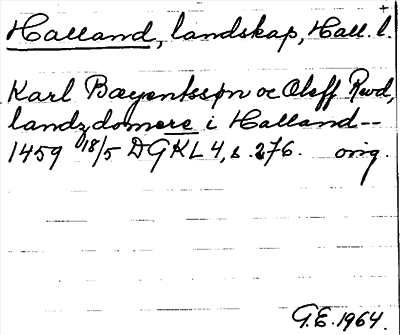 Halland, landskap, Hall. l. +
Karl Bayentsson oc Oleff Rwd,
landzdomere i Halland--
1459 18/5 DGKL 4, s. 276. orig.
G.E. 1964.